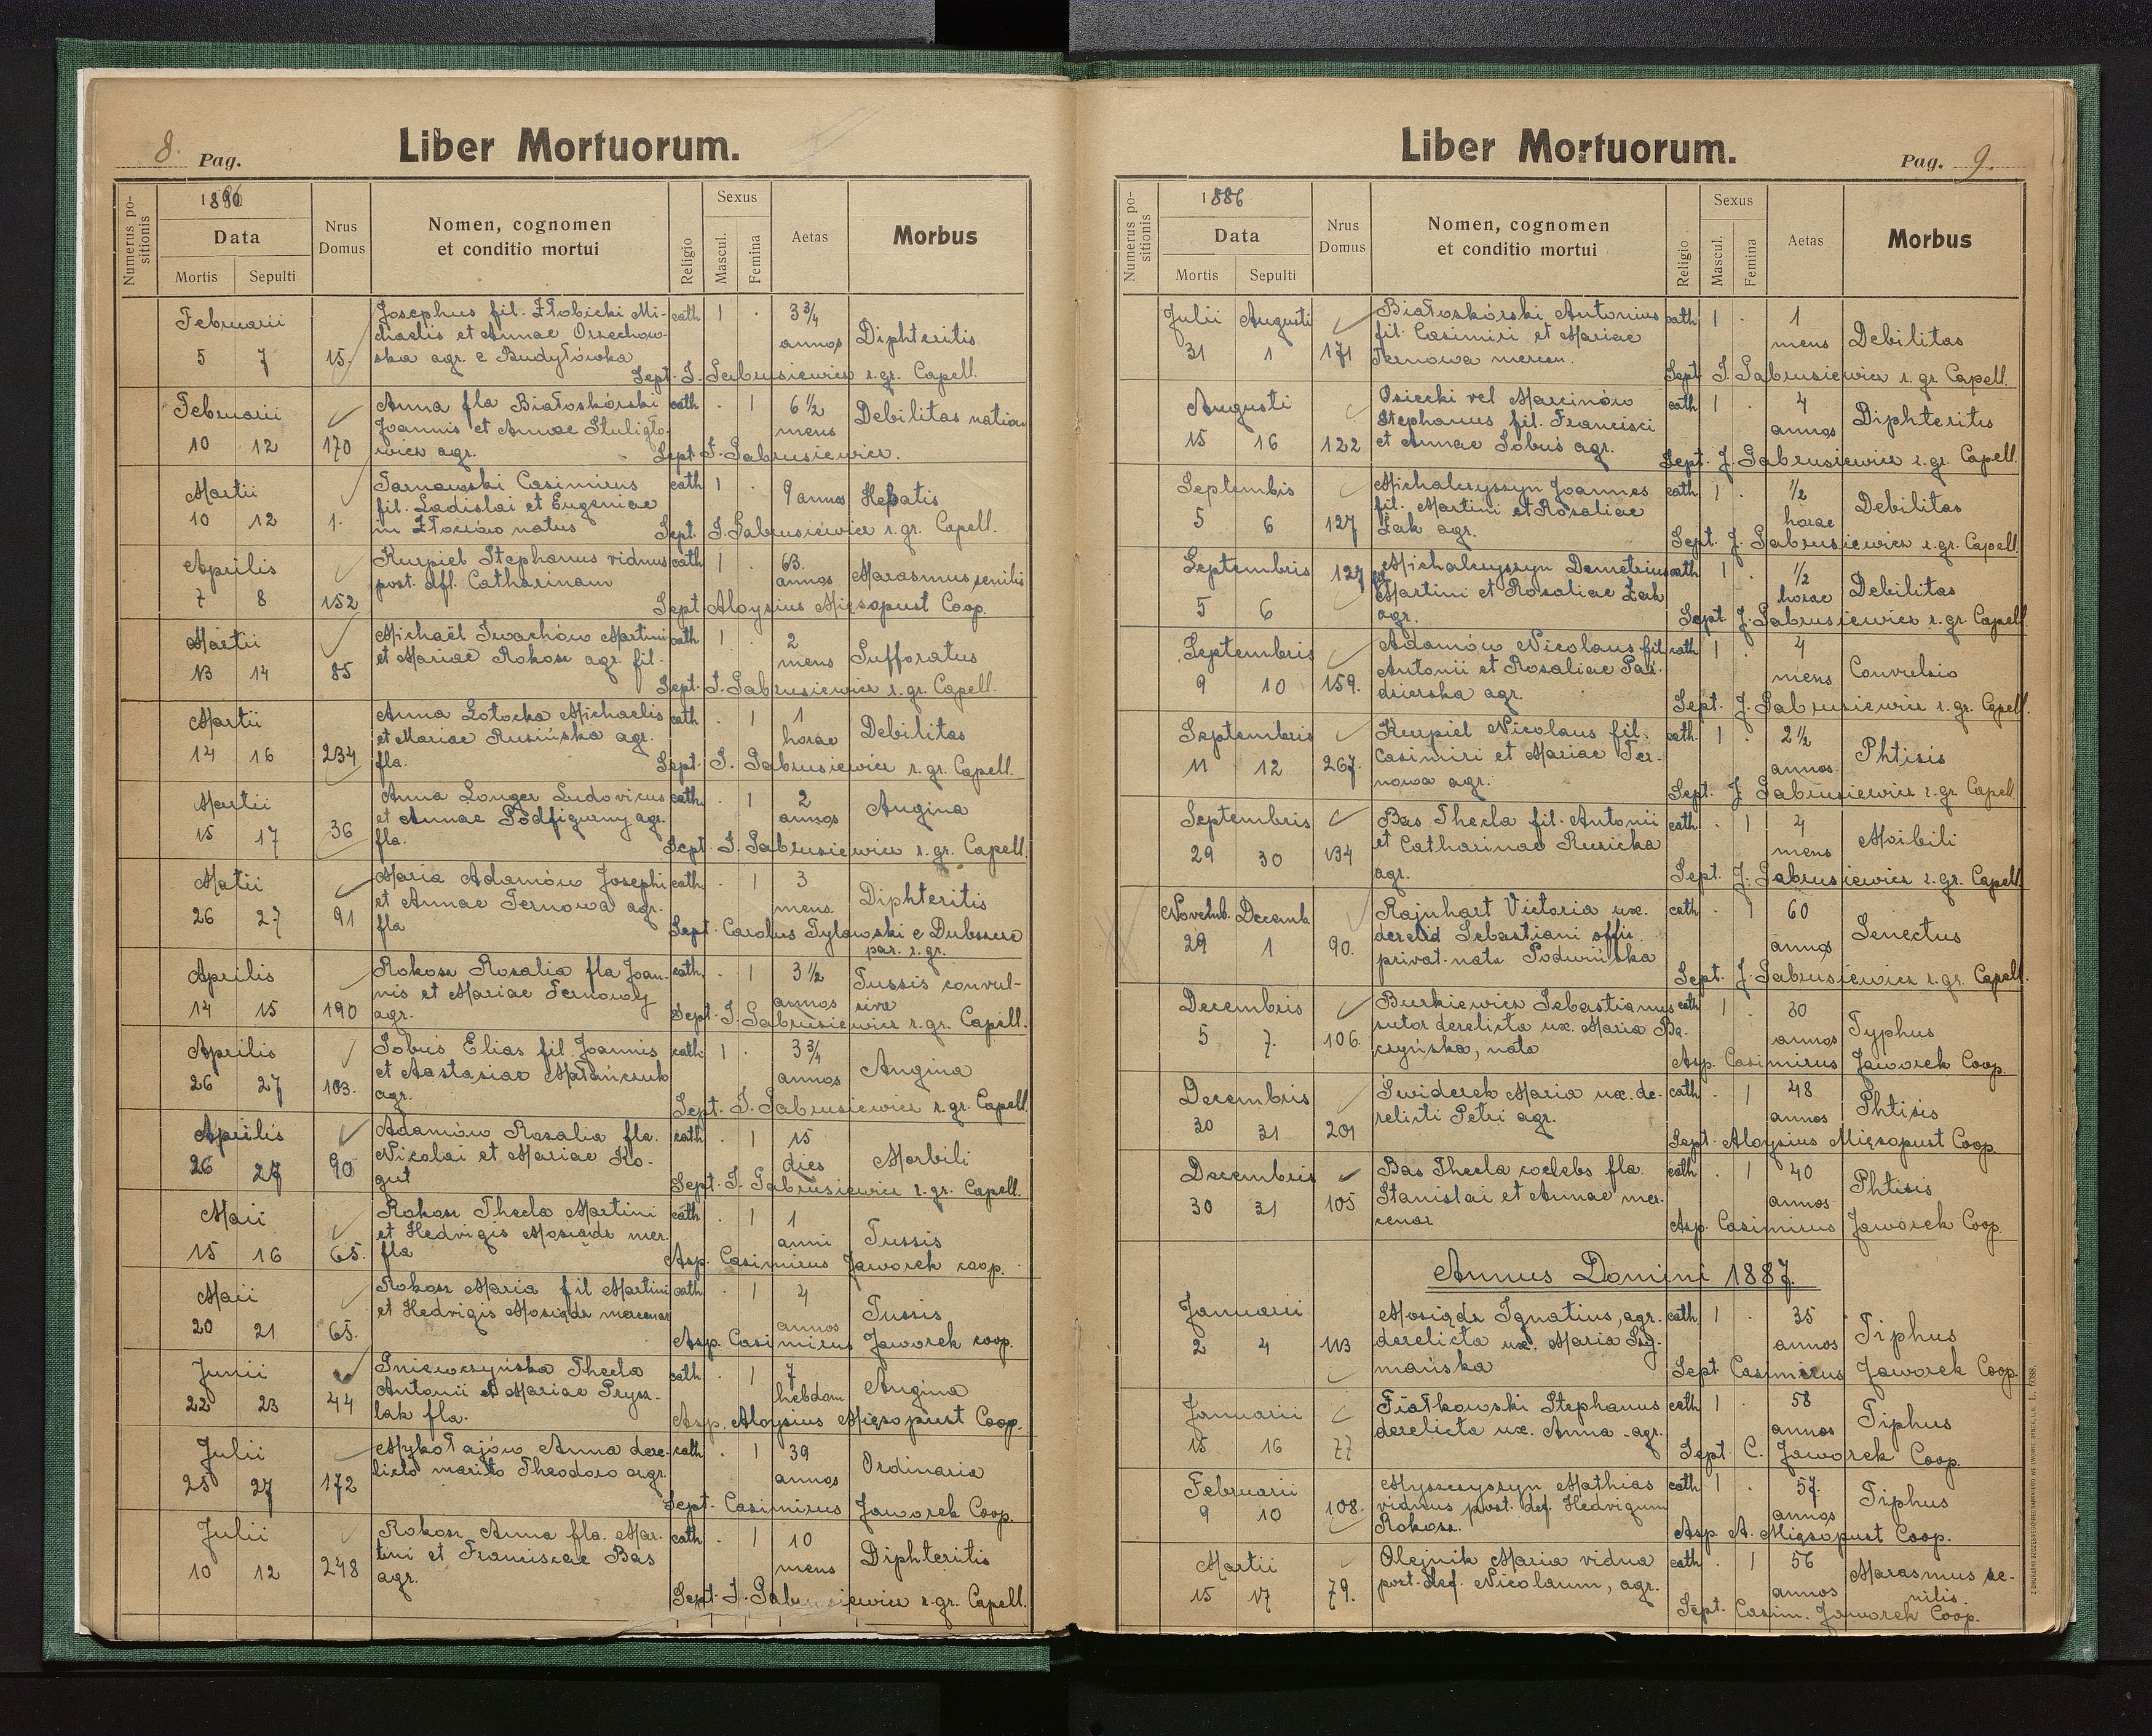 8. Pag.
Liber Mortuorum.
Numerus positionis
1886
Data
Mortis Sepulti
Nrus Domus
Nomen, cognomen
et conditio mortui
Religio
Sexus
Mascul. Femina
Aetas
Morbus
Februarii
5 7 15.
Josephus fil. Złobicki Mi-
chaelis et Annae Orzechow-
ska agr. e Budyłówka
cath 1 . 3 3/4 annos Diphteritis
Sept. J. Gabrusiewicz r. gr. Capell.
Februarii
10 12 170
Anna fla Białoskórski
Joannis et Annae Stuligło-
wicz agr.
cath . 1 6 1/2 mens Debilitas nation
Sept. J. Gabrusiewicz.
Martii
10 12 1.
Tarnawski Casimirus
fil. Ladislai et Eugeniae
in Złoczów natus
cath 1 . 9 annos Hepatis
Sept. J. Gabrusiewicz r. gr. Capell.
Aprilis
7 8 152
Kurpiel Stephanus viduus
post. dfl. Catharinam
cath 1 . 63. annos Marasmus senilis
Sept Aloysius Mięsopust Coop.
Martii
13 14 85
Michaël Iwachów Martini
et Mariae Rokosz agr. fil.
cath 1 . 2 mens Suffocatus
Sept. J. Gabrusiewicz r. gr. Capell.
Martii
14 16 234
Anna Łotocka Michaelis
et Mariae Rusińska agr.
fla.
cath . 1 1 horae Debilitas
Sept. J. Gabrusiewicz r. gr. Capell.
Martii
15 17 36
Anna Longer Ludovicus
et Annae Podfigurny agr.
fla.
cath. . 1 2 annos Angina
Sept. J. Gabrusiewicz r. gr. Capell.
Matii
26 27 91
Maria Adamów Josephi
et Annae Ternowa agr.
fla
cath. . 1 3 mens. Diphteritis
Sept. Carolus Tylawski e Dubszcze
par. r. gr.
Aprilis
14 15 190
Rokosz Rosalia fla Joan-
nis et Mariae Ternowy
agr.
cath. . 1 3 1/2 annos Tussis convul-
siva
Sept. J. Gabrusiewicz r. gr. Capell.
Aprilis
26 27 103.
Sobuś Elias fil. Joannis
et Aastasiae Małańczuk
agr.
cath 1 . 3 3/4 annos Angina
Sept. J. Gabrusiewicz r. gr. Capell
Aprilis
26 27 90
Adamów Rosalia fla.
Nicolai et Mariae Ko-
gut
cath . 1 15 dies Morbili
Sept. J. Gabrusiewicz r. gr. Capell.
Maii
15 16 65.
Rokosz Thecla Martini
et Hedvigis Mosiądz mer.
fla
cath . 1 1 anni Tussis
Asp. Casimirus Jaworek coop.
Maii
20 21 65.
Rokosz Maria fil Martini
et Hedvigis Mosiądz mercenar
cath . 1 4 annos Tussis
Asp. Casimirus Jaworek coop.
Junii
22 23 44
Gniewczyńska Thecla
Antonii et Mariae Prysz-
lak fla.
cath . 1 7 hebdom Angina
Asp. Aloysius Mięsopust Coop.
Julii
25 27 172
Mykołajów Anna dere-
licto marito Theodoro agr.
cath . 1 39 annos Ordinaria
Sept. Casimirus Jaworek Coop.
Julii
10 12 248
Rokosz Anna fla. Mar-
tini et Franciscae Bas
agr.
cath . 1 10 mens Diphteritis
Sept. J. Gabrusiewicz r. gr. Capell.
Liber Mortuorum.
Pag. 9.
Numerus positionis
1886
Data
Mortis Sepulti
Nrus Domus
Nomen, cognomen
et conditio mortui
Religio
Sexus
Mascul. Femina
Aetas
Morbus
Julii Augusti
31 1 171
Białoskórski Antonius
fil. Casimiri et Mariae
Ternowa mercen.
cath 1 . 1 mens Debilitas
Sept J. Gabrusiewicz r. gr. Capell.
Augusti
15 16 122
Osiecki vel Marcinów
Stephanus fil. Francisci
et Annae Sobuś agr.
cath 1 . 4 annos Diphteritis
Sept. J. Gabrusiewicz r. gr. Capell.
Septembis
5 6 127
Michalczyszyn Joannes
fil. Martini et Rosaliae
Żak agr.
cath 1 . 1/2 horae Debilitas
Sept. J. Gabrusiewicz r. gr. Capell.
Septembris
5 6 127
Michalczyszyn Demetrius
fil. Martini et Rosaliae Żak
agr.
cath 1 . 1/2 horae Debilitas
Sept. J. Gabrusiewicz r. gr. Capell
Septembris
9 10 159.
Adamów Nicolaus fil
Antonii et Rosaliae Paź-
dzierska agr.
cath 1 . 4 mens Convulsio
Sept. J. Gabrusiewicz r. gr. Capell.
Septembris
11 12 267.
Kurpiel Nicolaus fil.
Casimiri et Mariae Ter-
nowa agr.
cath. 1 . 2 1/2 annos Phtisis
Sept. J. Gabrusiewicz r. gr. Capell
Septembris
29 30 134
Bas Thecla fil. Antonii
et Catharinae Rusicka
agr.
cath . 1 4 mens Moibili
Sept. J. Gabrusiewicz r. gr. Capell.
Novemb. Decemb
29 1 90.
Rajnhart Victoria ux.
derelict Sebastiani offic.
privat. nata Podwińska
cath . 1 60 annos Senectus
Sept. J. Gabrusiewicz r. gr. Capell.
Decembris
5 7. 106.
Burkiewicz Sebastianus
sutor derelicta ux. Maria Ba-
czyńska, nata
cath 1 . 30 annos Typhus
Asp. Casimirus Jaworek Coop.
Decembris
30 31 201
Świderek Maria ux. de-
relicti Petri agr.
cath . 1 48 annos Phtisis
Sept. Aloysius Mięsopust Coop.
Decembris
30 31 105
Bas Thecla coelebs fla.
Stanislai et Annae mer-
cenar
cath . 1 40 annos Phtisis
Asp. Casimirus Jaworek Coop.
Annus Domini 1887.
Januarii
2 4 113
Mosiądz Ignatius, agr.
derelicta ux. Maria Szy-
mańska
cath 1 . 35 annos Tiphus
Sept Casimirus Jaworek Coop.
Januarii
15 16 77
Fiałkowski Stephanus
derelicta ux. Anna . agr.
cath 1 . 58 annos Tiphus
Sept C. Jaworek Coop.
Februarii
9 10 108.
Myszczyszyn Mathias
viduus post. def. Hedvigum
Rokosz.
cath 1 . 57. annos Tiphus
Asp. A. Mięsopust Coop.
Martii
15 17 79.
Olejnik Maria vidua
post. def. Nicolaum, agr.
cath . 1 56 annos Marasmus se-
nilis.
Sept. Casim. Jaworek Coop.